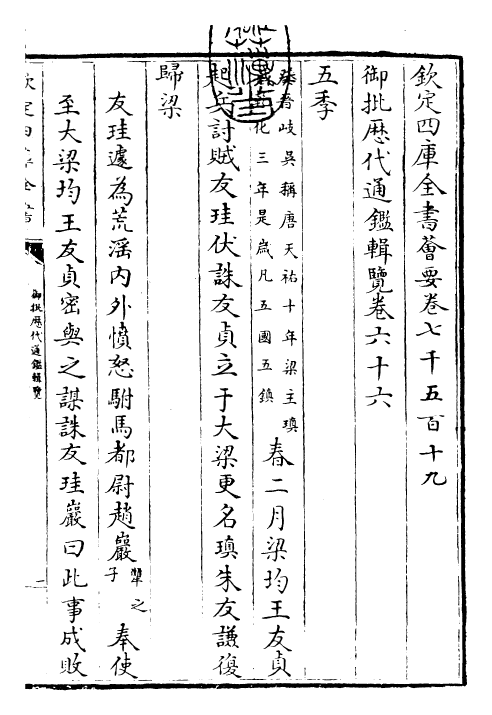 欽定四庫全書薈要卷七千五百十九
御批歷代通鑑輯覽卷六十六
五季
晉岐吳稱唐天祐十年梁主瑱
化三年是歲凡五國五鎮
春二月梁均王友貞
起兵討賊友珪伏誅友貞立于大梁更名瑱朱友謙復
歸梁
友珪遽為荒淫內外憤怒駙馬都尉趙巖犨之子奉使
至大梁均王友貞密與之謀誅友珪巖曰此事成敗
欽定四庫全書
御批歷代通鑑輯覽